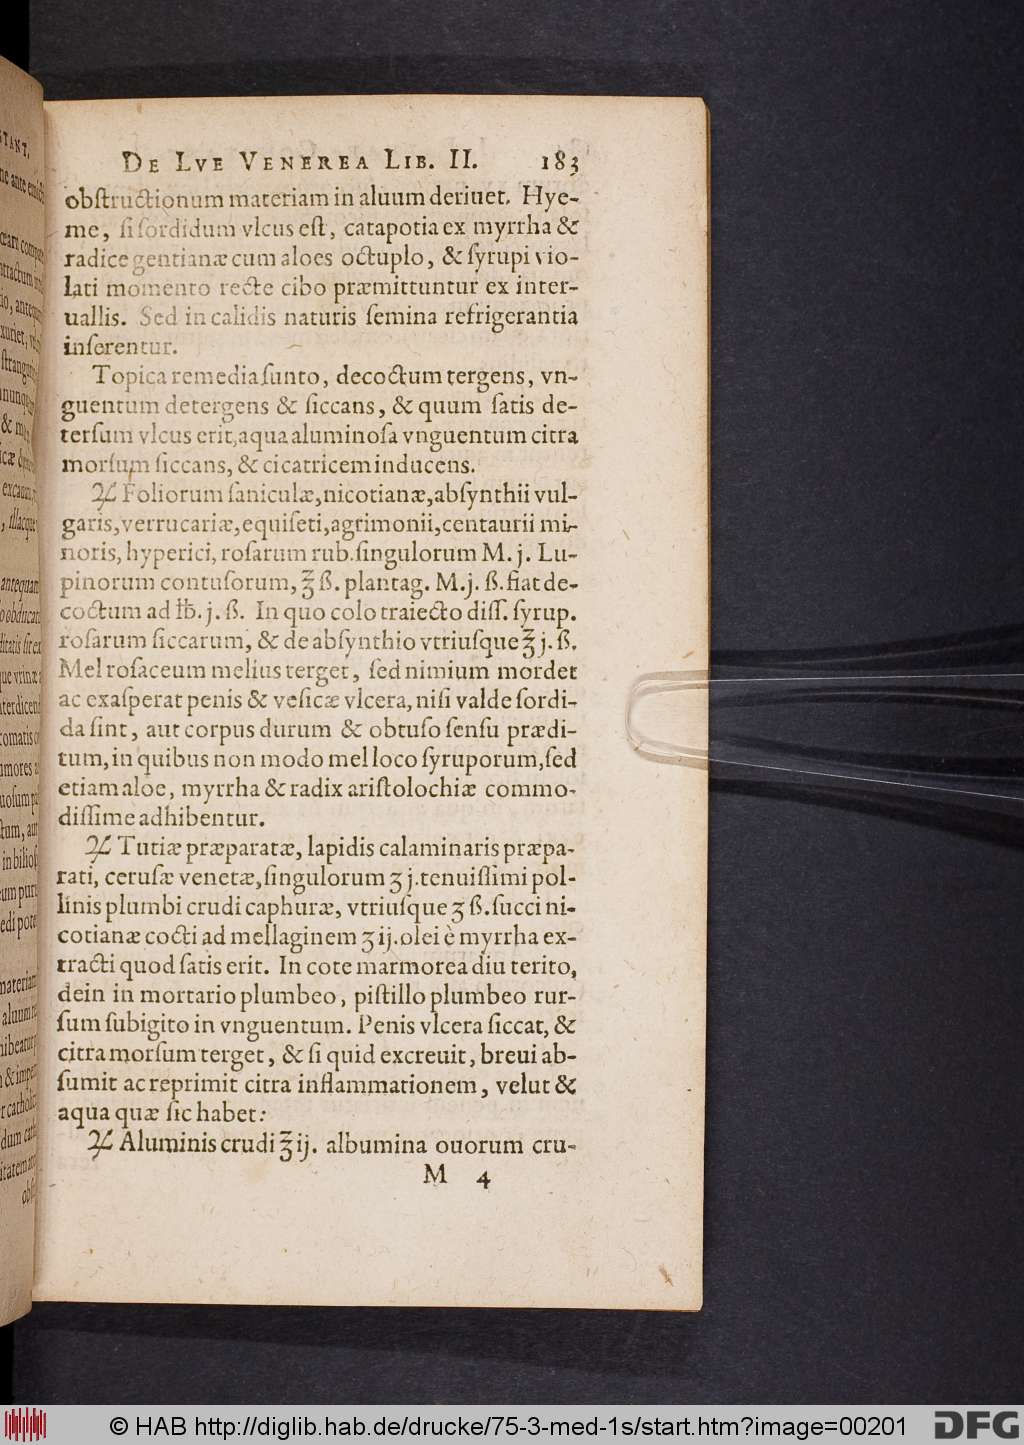 De Lve Venerea Lib. II. 183
obſtructionum materiam in aluum deriuet. Hye-
me, ſi ſordidum vlcus eſt, catapotia ex myrrha &
radice gentianæ cum aloes octuplo, & ſyrupi vio-
lati momento recte cibo præmittuntur ex inter-
uallis. Sed in calidis naturis ſemina refrigerantia
inſerentur.
Topica remedia ſunto, decoctum tergens, vn-
guentum detergens & ſiccans, & quum ſatis de-
terſum vlcus erit, aqua aluminoſa vnguentum citra
morſum ſiccans, & cicatricem inducens.
♃ Foliorum ſaniculæ, nicotianæ, abſynthii vul-
garis, verrucariæ, equiſeti, agrimonii, centaurii mi-
noris, hyperici, roſarum rub. ſingulorum M. j. Lu-
pinorum contuſorum, ℥ ß. plantag. M. j. ß. fiat de-
coctum ad ℔. j. ß. In quo colo traiecto diſſ. ſyrup.
roſarum ſiccarum, & de abſynthio vtriuſque ℥ j. ß.
Mel roſaceum melius terget, ſed nimium mordet
ac exaſperat penis & veſicæ vlcera, niſi valde ſordi-
da ſint, aut corpus durum & obtuſo ſenſu prædi-
tum, in quibus non modo mel loco ſyruporum, ſed
etiam aloe, myrrha & radix ariſtolochiæ commo-
diſſime adhibentur.
♃ Tutiæ præparatæ, lapidis calaminaris præpa-
rati, ceruſæ venetæ, ſingulorum ʒ j. tenuiſſimi pol-
linis plumbi crudi caphuræ, vtriuſque ʒ ß. ſucci ni-
cotianæ cocti ad mellaginem ʒ ij. olei è myrrha ex-
tracti quod ſatis erit. In cote marmorea diu terito,
dein in mortario plumbeo, piſtillo plumbeo rur-
ſum ſubigito in vnguentum. Penis vlcera ſiccat, &
citra morſum terget, & ſi quid excreuit, breui ab-
ſumit ac reprimit citra inflammationem, velut &
aqua quæ ſic habet:
♃ Aluminis crudi ℥ ij. albumina ouorum cru-
M 4
© HAB http://diglib.hab.de/drucke/75-3-med-1s/start.htm?image=00201
DFG